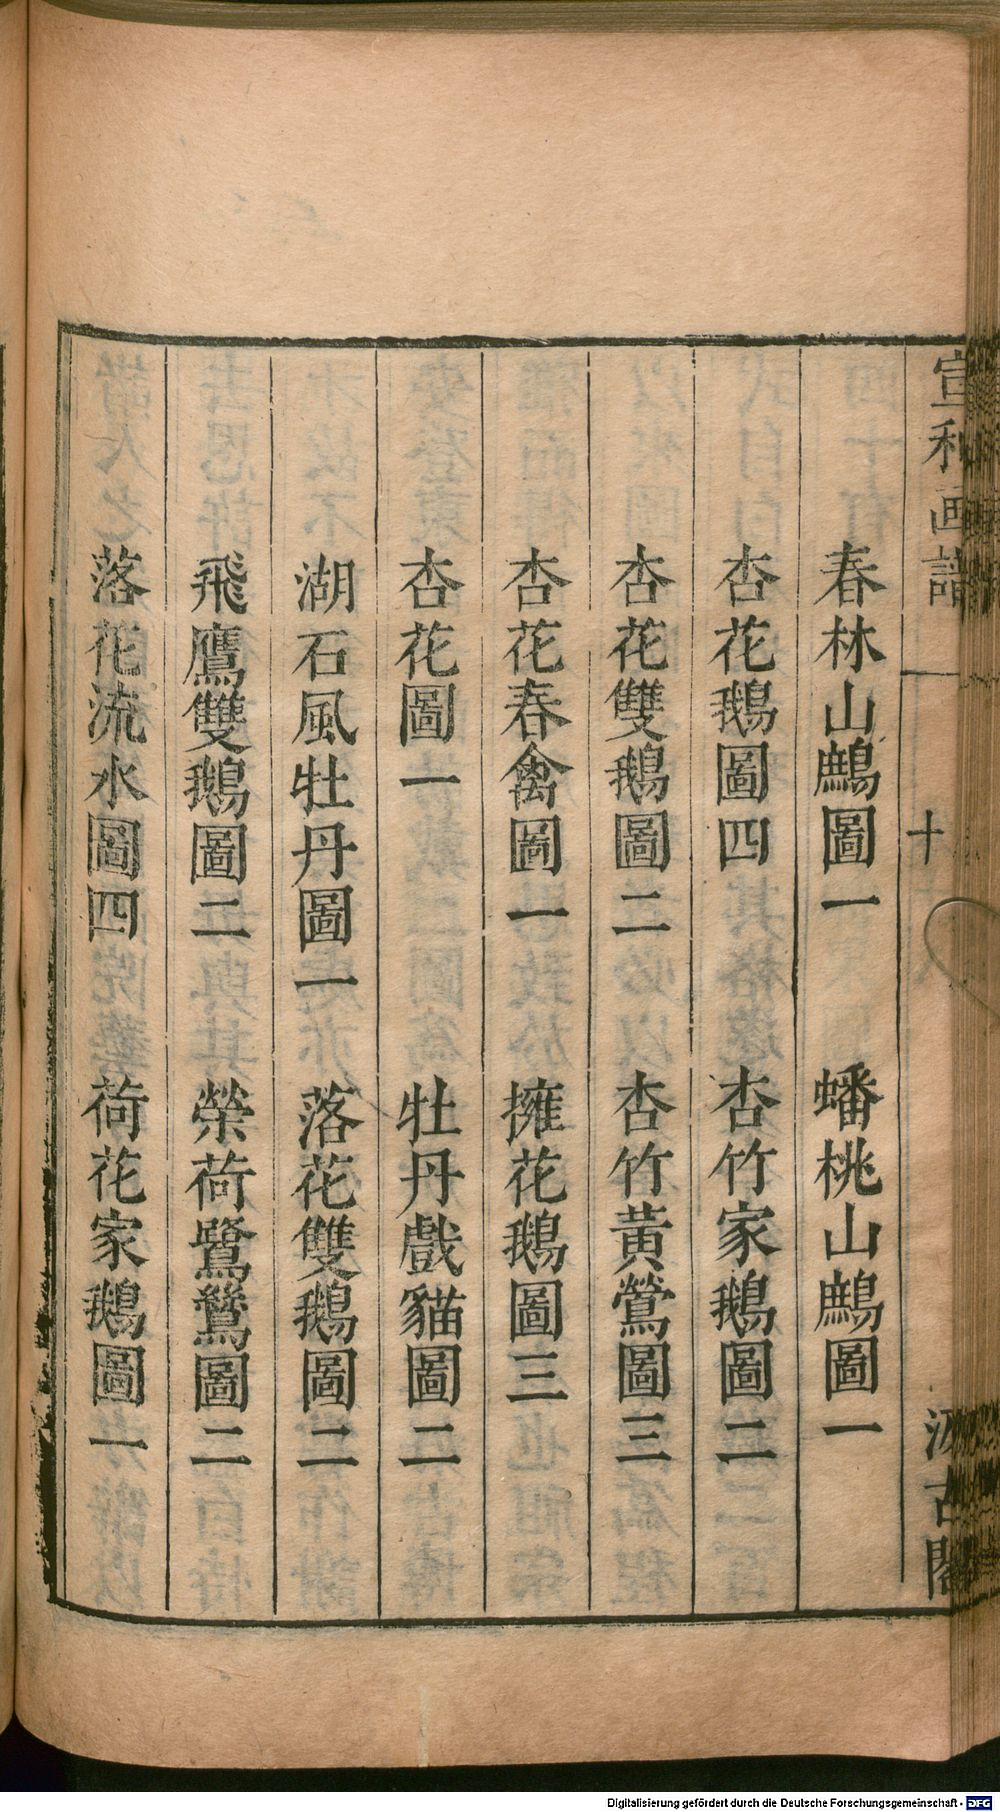 宣和画譜 十 汲古閣
春林山鷓圖一 蟠桃山鷓圖一
杏花鵝圖四 杏竹家鵝圖二
杏花雙鵝圖二 杏竹黃鶯圖三
杏花春禽圖一 擁花鵝圖三
杏花圖一 牡丹戲貓圖二
湖石風牡丹圖一 落花雙鵝圖二
飛鷹雙鵝圖二 榮荷鷺鷥圖二
落花流水圖四 荷花家鵝圖一
Digitalisierung gefördert durch die Deutsche Forschungsgemeinschaft - DFG